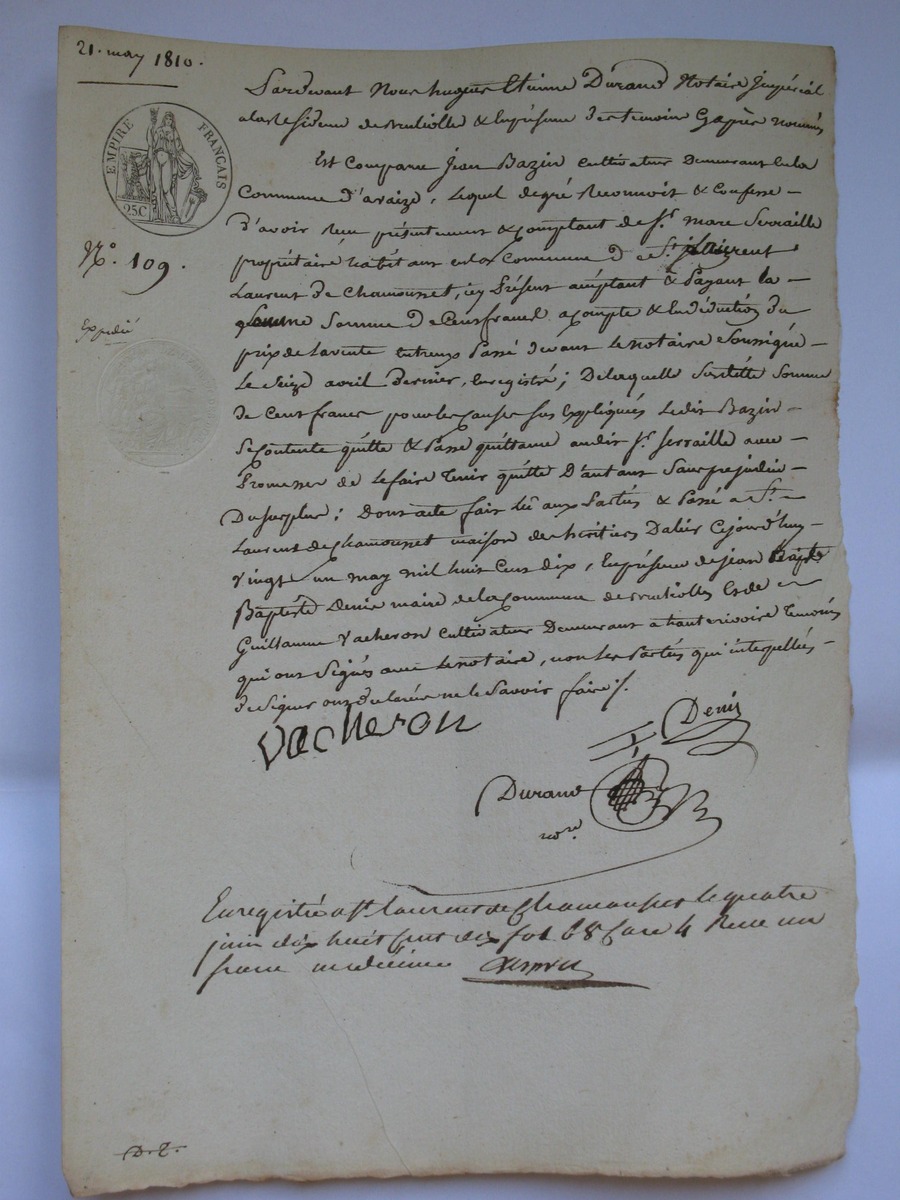 21. may 1810.
EMPIRE FRANÇAIS
25C
N.º 109.
Expedié
Pardevant Nous hugues Etienne Durand Notaire Impérial
a la Residence de brulliolle & En présence des temoins Cy après nommés
Est Comparu Jean Bazin Cultivateur Demeurant en la
Commune d'avaize, lequel de gré Reconnoit & Confesse –
D'avoir Reçu présentement & Comptant de S.r marc Serraille
propriétaire habitant en la Commune de S.t
Laurent de Chamousset, icy Présent acceptant & Payant la –
Somme de Cent francs a compte & En déduction du
prix de la vente entreux Passé devant le notaire Soussigné –
le Seize avril Dernier, Enregistré; De laquelle Susditte Somme
de Cent francs pour les causes sus Expliqués Ledit Bazin –
Se Contente quitte & Passe quittance audit S.r Serraille avec –
Promesse de le faire tenir quitte D'autant Sans prejudice –
Du Surplus; Dont acte fait lû aux Parties & Passé a S.t –
Laurent de Chamousset maison des heritiers Dalier Cejourd'huy –
Vingt un may mil huit Cent dix, En présence de jean
Baptiste Denis maire de la Commune de brulliolles Et de –
Guillaume Vacheron Cultivateur Demeurant a hauterivoire temoins
qui ont Signés avec le notaire, non les Parties qui interpellés –
de Signer ont déclarés ne le Savoir faire ./.
Vacheron
Denis
Durand
no.re
Enregistré a St Laurent de Chamousset le quatre
juin dix huit Cent dix fol 68 Case 4 Recu un
franc un décime
D. E.